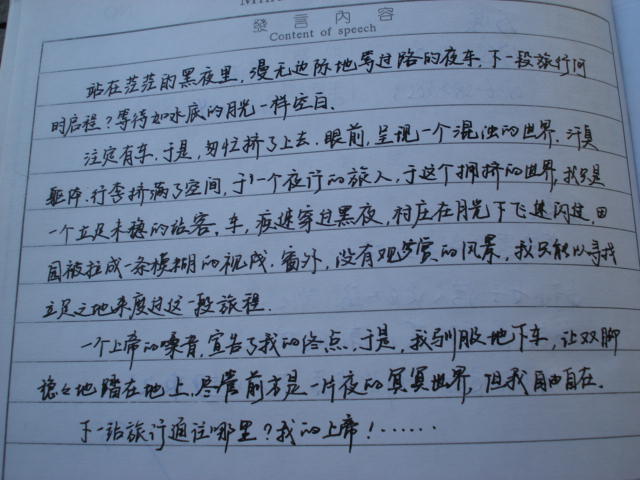 Min
發言內容
Content of speech
站在茫茫的黑夜里,漫无边际地骂过路的夜车,下一段旅行何
时启程?等待如水底的月光一样空白.
注定有车,于是,匆忙挤了上去.眼前,呈现一个混浊的世界.汗臭
驱阵.行李挤满了空间,于一个夜行的旅人,于这个拥挤的世界,我只是
一个立足未稳的站客,车,疲迷穿过黑夜,村庄在月光下飞速闪过,田
园被拉成一条模糊的视线.窗外,没有观赏的风景,我只能以寻找
立足之地来度过这一段旅程.
一个上帝的嗓音,宣告了我的终点.于是,我驯服地下车,让双脚
稳々地踏在地上.尽管前方是一片夜的冥冥世界,但我自由自在.
下一站旅行通往哪里?我的上帝!……